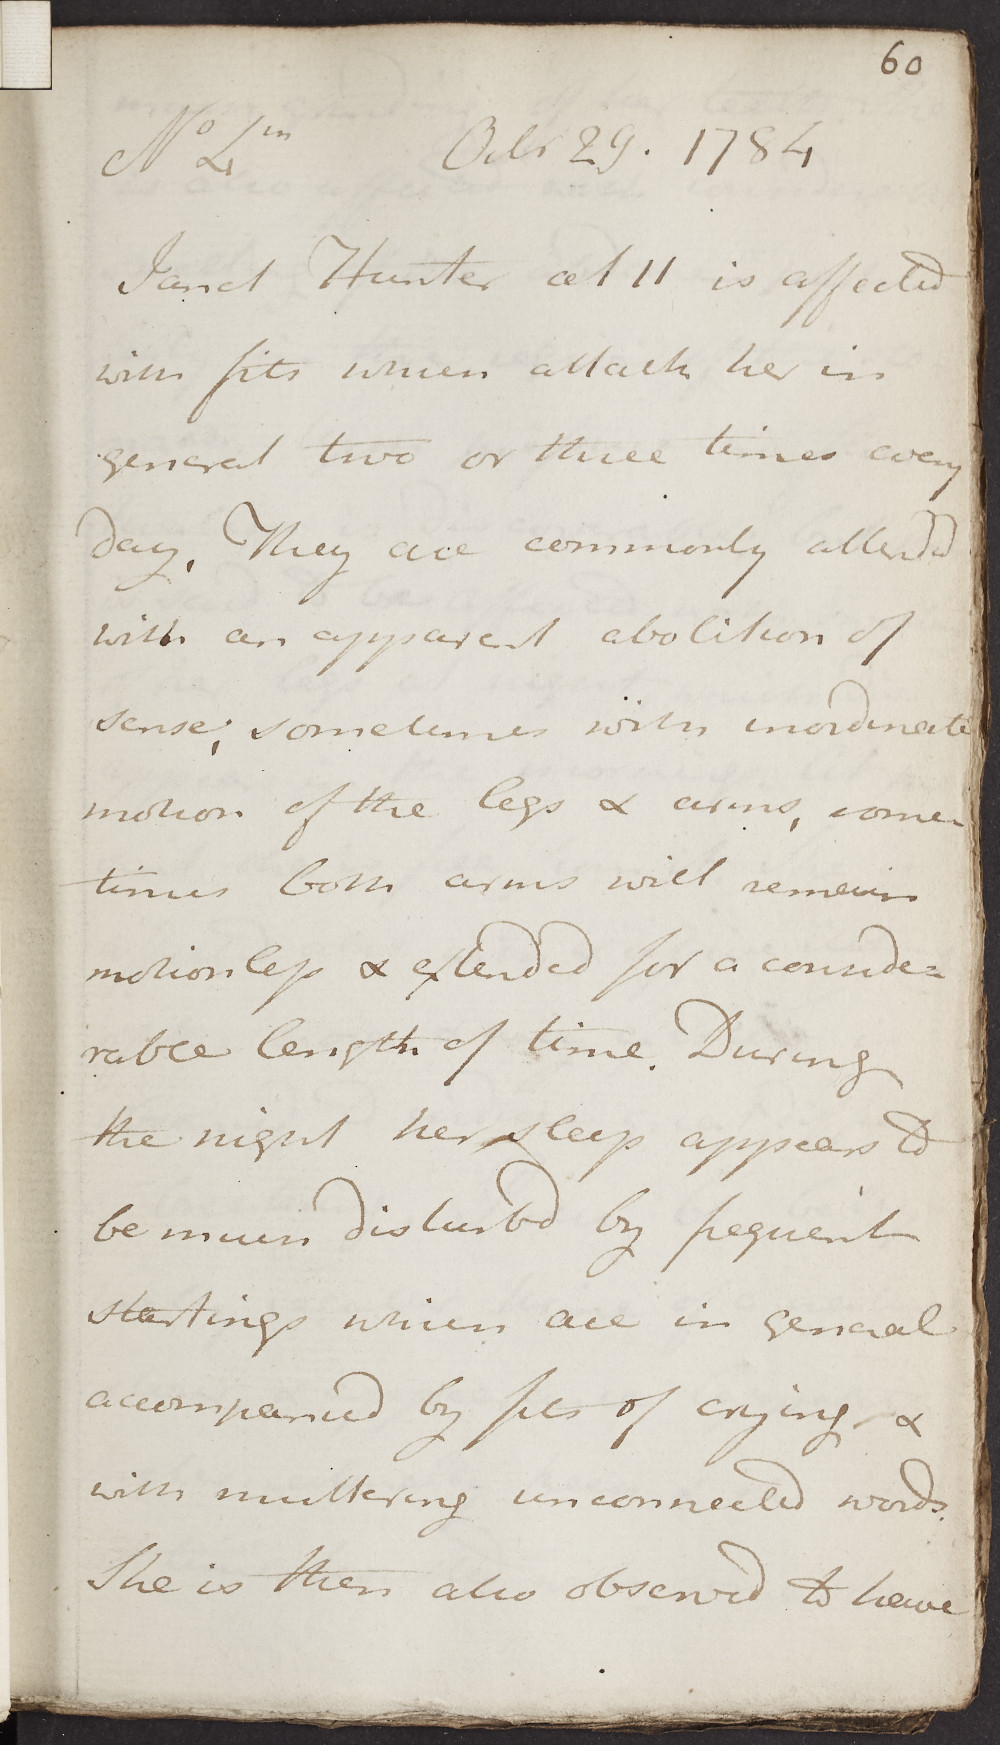 60
No 4m Octr 29. 1784
Janet Hunter æt 11 is affected
with fits which attack her in
general two or three times every
day. They are commonly attended
with an apparent abolition of
sense; sometimes with inordinate
motion of the legs & arms, some-
times both arms will remain
motionless & extended for a conside=
rable length of time. During
the night her sleep appears to
be much disturbd by frequent
startings which are in general
accompanied by fits of crying &
with muttering unconnected words.
She is then also observed to have